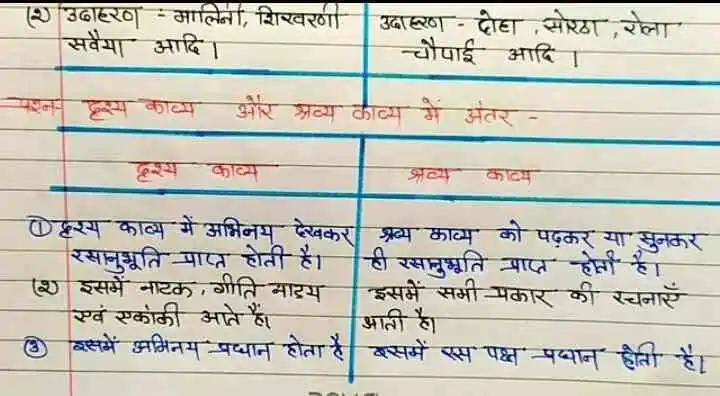 (२) उदाहरण :- मालिनी, शिखरणी
सवैया आदि।
उदाहरण - दोहा, सोरठा, रोला
चौपाई आदि।
प्रश्न- दृश्य काव्य और श्रव्य काव्य में अंतर -
दृश्य काव्य
श्रव्य काव्य
① दृश्य काव्य में अभिनय देखकर
रसानुभूति प्राप्त होती है।
श्रव्य काव्य को पढ़कर या सुनकर
ही रसानुभूति प्राप्त होती है।
(२) इसमें नाटक, गीति नाट्य
एवं एकांकी आते हैं।
इसमें सभी प्रकार की रचनाएँ
आती है।
③ इसमें अभिनय प्रधान होता है
इसमें रस पक्ष प्रधान होती है।